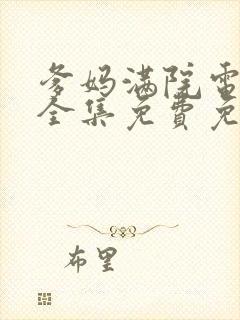 爹妈满院电
全集免費免
布里